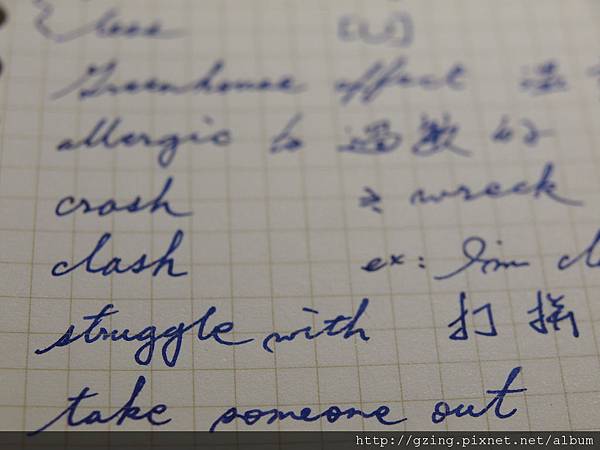 loss [U]
Greenhouse effect
allergic to 過敏的
crash ≥ wreck
clash ex: I'm
struggle with 打
take someone out
http://gzing.pixnet.net/album